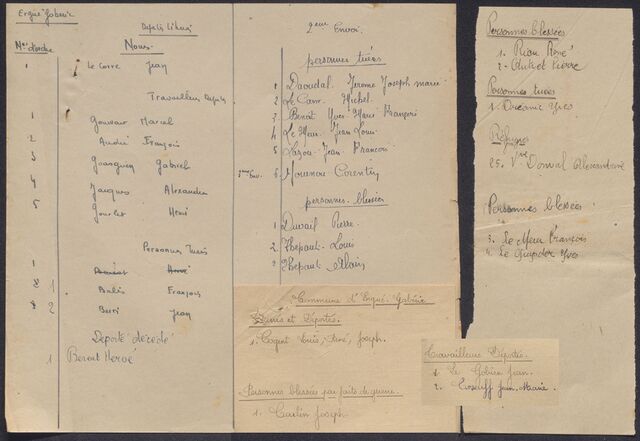 Ergué-Gabéric
Déportés Libérés
Nos d'ordre
Noms
1 Le Corre Jean
Travailleurs Déportés
1 Gouvour Marcel
2 André François
3 Goasguen Gabriel
4 Jacques Alexandre
5 Gourlet René
Personnes Tuées
1
1 Balès François
2 Burri Jean
Déporté décédé
1 Benoit Hervé
2eme Envoi
personnes tuées
1 Daoudal Jerome Joseph marie
2 Le Corr Michel
3 Benoît Yves-Marie François
4 Le Meur Jean Louis
5 Lazou Jean François
6. Gourmou Corentin
personnes blessées
1 Duvail Pierre
2. Thepaut Louis
Thepaut Alain
Commune d'Ergué-Gabéric
et Déportés.
1. Cogent Louis, René, Joseph.
Personnes blessées par faits de guerre.
1. Carlin Joseph
Travailleurs Déportés.
1. Le Gobien Jean.
2. Jean-Marie.
Personnes blessées
1. Riou René
2. Pierre
Personnes tuées
1. Yves
Réfugiés
25. Vve Donval Alexandrine
Personnes blessées
3. Le Meur François
4. Le Yves